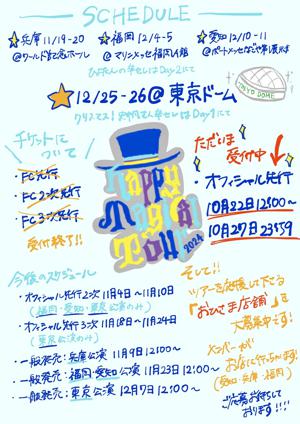 SCHEDULE
☆兵庫 11/19-20
@ワールド記念ホール
☆福岡 12/4-5
@マリンメッセ福岡A館
☆愛知 12/10-11
@ポートメッセなごや第1展示館
Day2にて
☆12/25-26@東京ドーム
Day1にて
TOKYO DOME
チケットに
ついて
・FC先行
・FC2次先行
・FC3次先行
受付終了!!
Happy
Magical
Tour
2024
ただいま
受付中
・オフィシャル先行
10月22日12:00〜
10月27日23:59
今後のスケジュール
・オフィシャル先行2次 11月4日〜11月10日
(福岡・愛知・東京公演のみ)
・オフィシャル先行3次 11月18日〜11月24日
(東京公演のみ)
・一般発売:兵庫公演 11月9日 12:00〜
・一般発売:福岡・愛知公演 11月23日 12:00〜
・一般発売:東京公演 12月7日 12:00〜
そして!!
ツアーを応援して下さる
「おもてなし店舗」を
大募集中です!
メンバーが
お店に行っちゃいます!
(愛知・兵庫・福岡)
ご応募お待ちして
おります!!!!